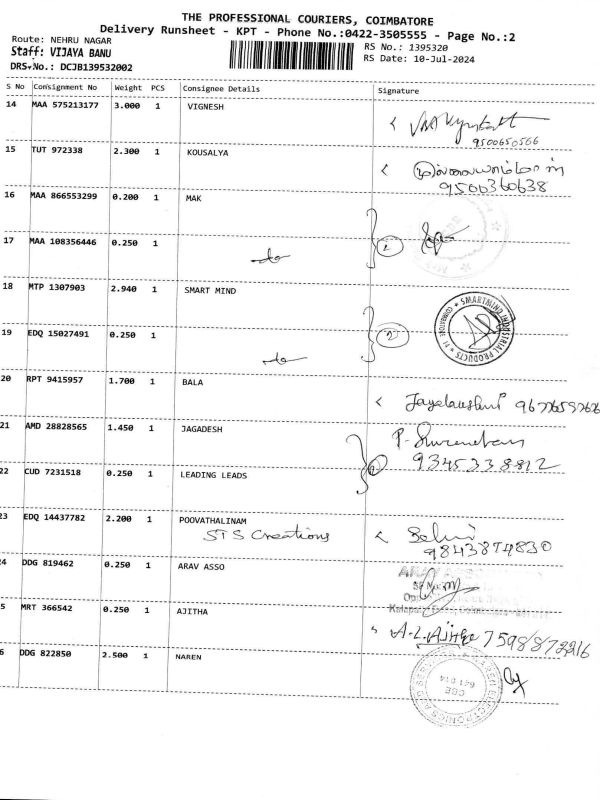 THE PROFESSIONAL COURIERS, COIMBATORE
Delivery Runsheet - KPT - Phone No.:0422-3505555 - Page No.:2
Route: NEHRU NAGAR
RS No.: 1395320
Staff: VIJAYA BANU
RS Date: 10-Jul-2024
DRS No.: DCJB139532002
S No Consignment No Weight PCS Consignee Details Signature
14 MAA 575213177 3.000 1 VIGNESH
9500650566
15 TUT 972338 2.300 1 KOUSALYA
9500360638
16 MAA 866553299 0.200 1 MAK
17 MAA 108356446 0.250 1
-do- 1
18 MTP 1307903 2.940 1 SMART MIND
SMARTMIND INDUSTRIAL PRODUCTS
COIMBATORE
19 EDQ 15027491 0.250 1
-do- 2
20 RPT 9415957 1.700 1 BALA
21 AMD 28828565 1.450 1 JAGADESH
9345338812
22 CUD 7231518 0.250 1 LEADING LEADS
23 EDQ 14437782 2.200 1 POOVATHALINAM
STS Creations
9843874830
24 DDG 819462 0.250 1 ARAV ASSO
ARAV
5 MRT 366542 0.250 1 AJITHA
7598872216
6 DDG 822850 2.500 1 NAREN
CBE
641 014